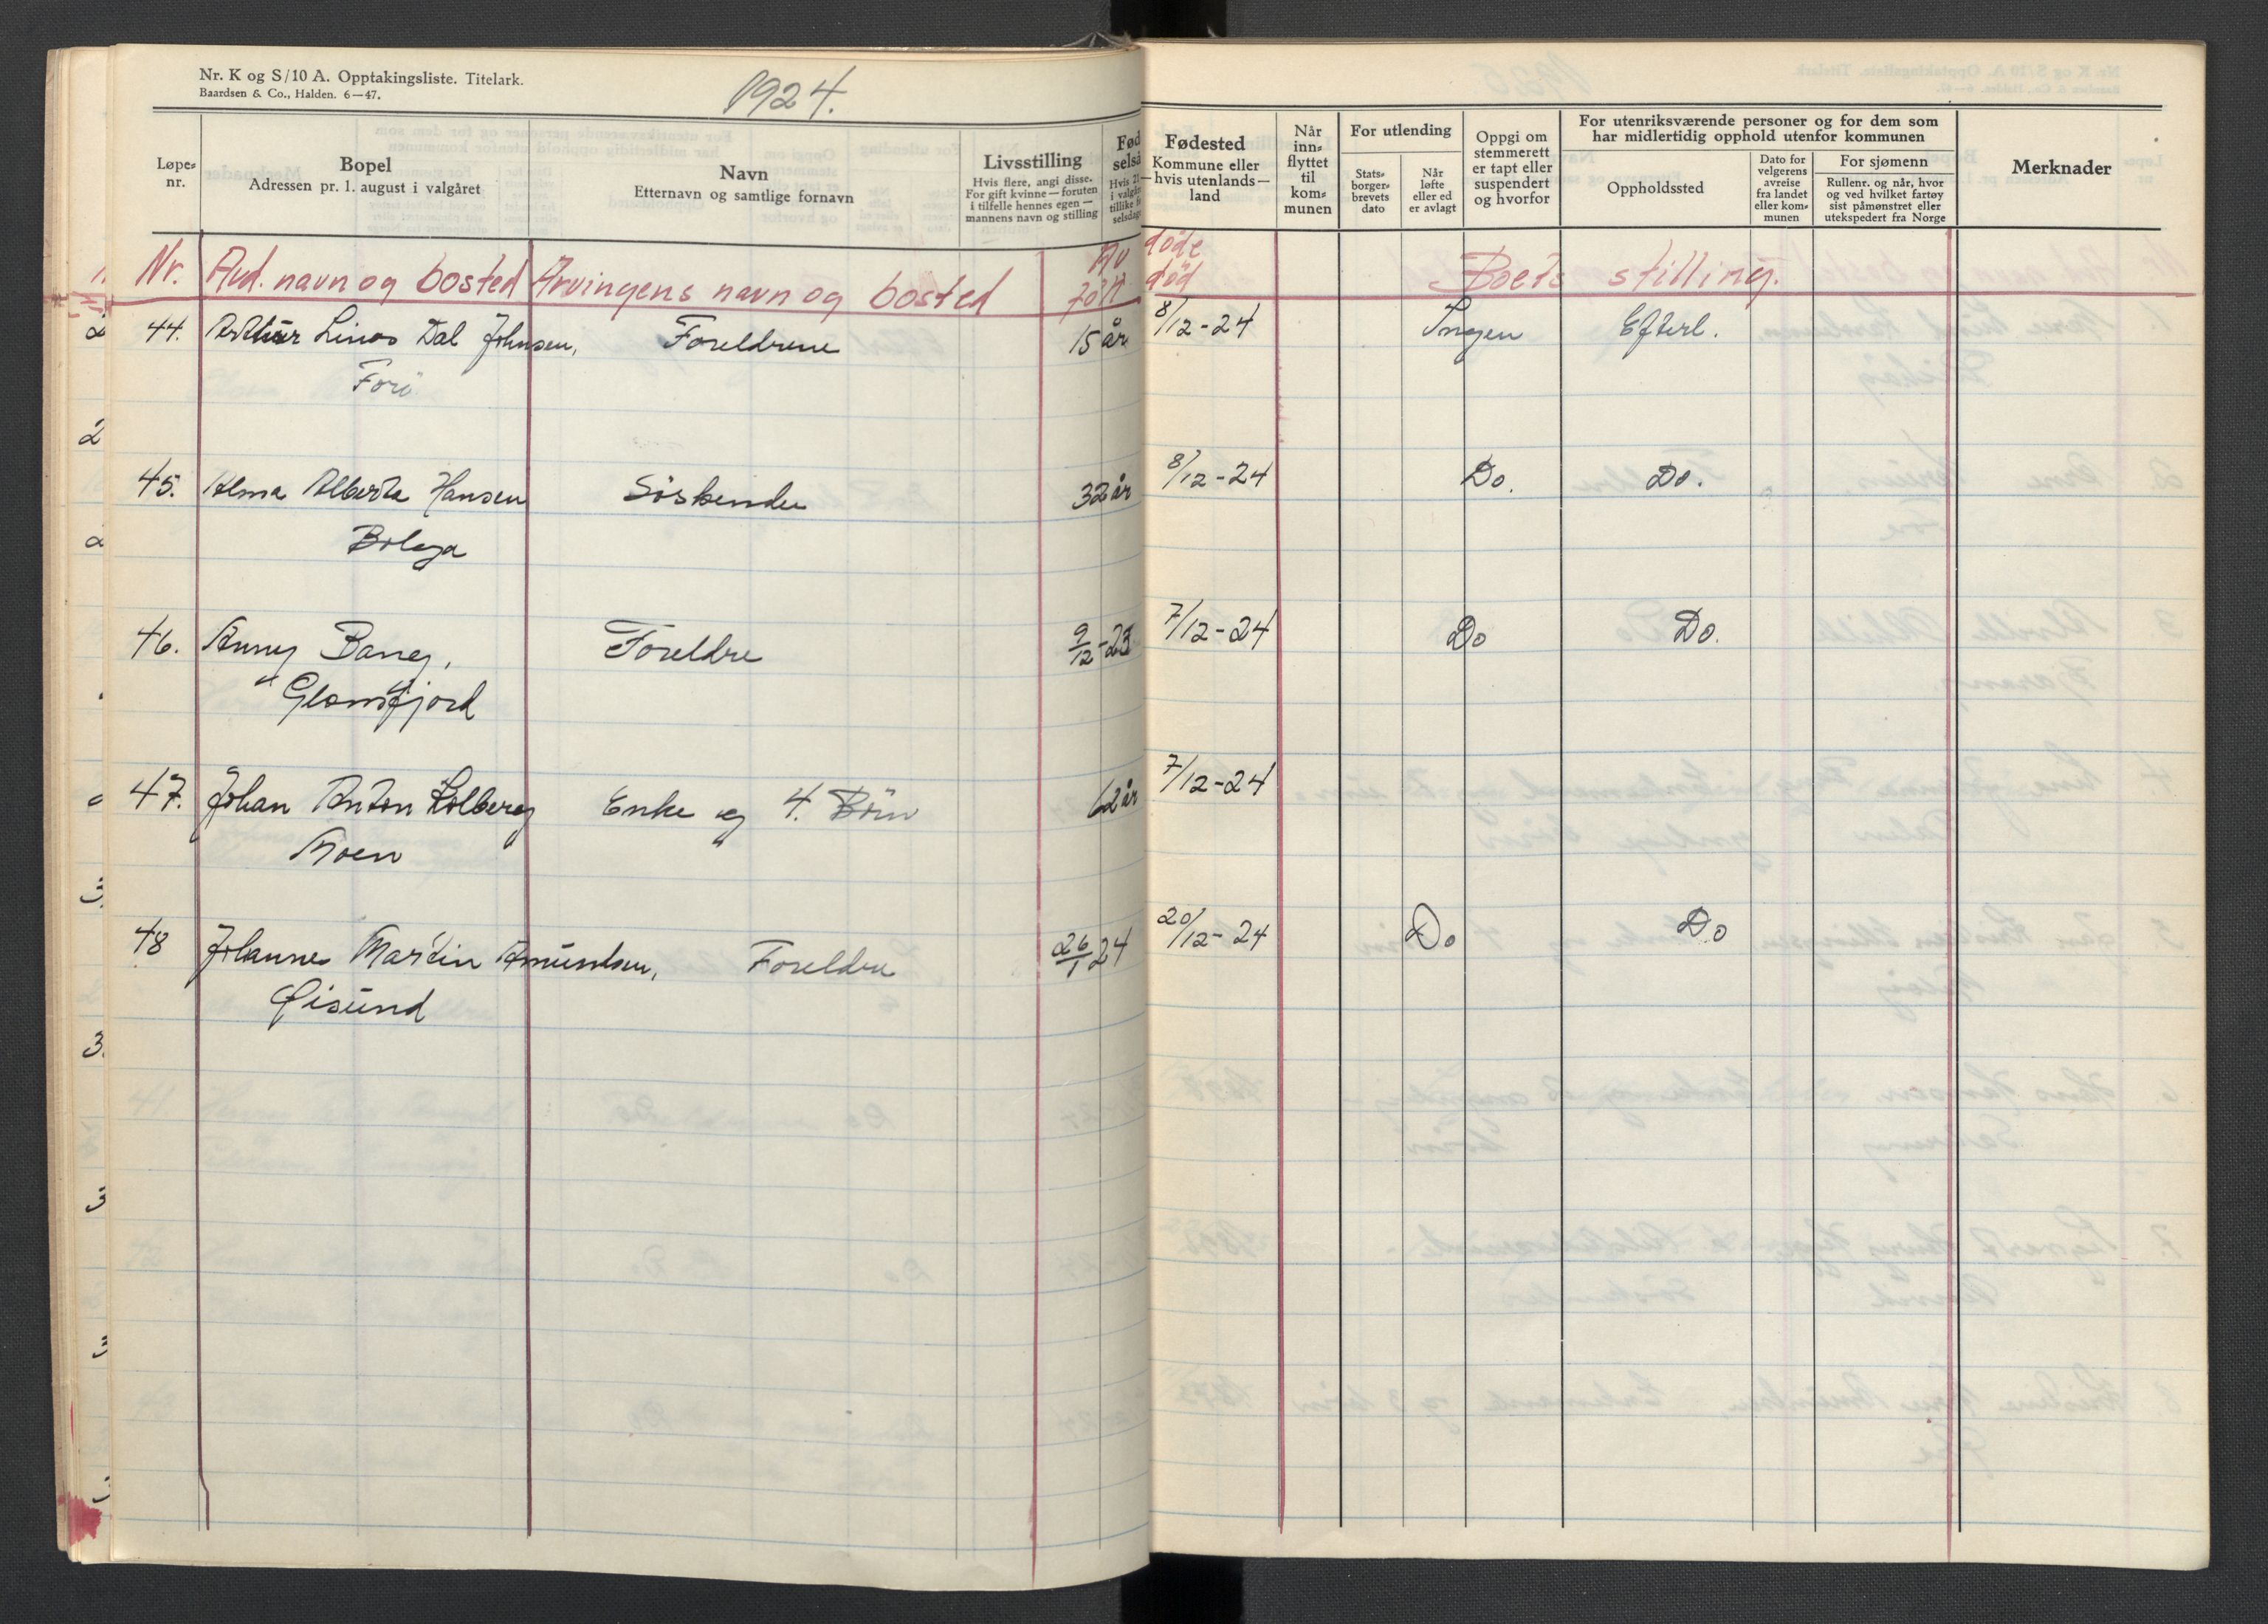 Nr. K og S/10 A. Opptakingsliste. Titelark.
Baardsen & Co., Halden. 6—47.
1924.
Løpe-
nr.
Bopel
Adressen pr. 1. august i valgåret
Navn
Etternavn og samtlige fornavn
Livsstilling
Hvis flere, angi disse.
For gift kvinne — foruten
i tilfelle hennes egen —
mannens navn og stilling
Fød
selså
Hvis 2
i valgå
tillike f
selsdag
Fødested
Kommune eller
hvis utenlands —
land
Når
inn-
flyttet
til
kom-
munen
For utlending
Stats-
borger-
brevets
dato
Når
løfte
eller ed
er avlagt
Oppgi om
stemmerett
er tapt eller
suspendert
og hvorfor
For utenriksværende personer og for dem som
har midlertidig opphold utenfor kommunen
Oppholdssted
Dato for
velgerens
avreise
fra landet
eller kom-
munen
For sjømenn
Rullenr. og når, hvor
og ved hvilket fartøy
sist påmønstret eller
utekspedert fra Norge
Merknader
Nr. Avd. navn og bosted Arvingens navn og bosted Av døde
født død Boets stilling.
44. Arthur Linos Dal Johnsen, Foreldrene 15 år 8/12-24 Ingen Efterl.
Forö
45. Alma Alberta Hansen Söskende 32 år 8/12-24 Do. Do.
Bolga
46. Anny Bang, Foreldre 9/12-23 7/12-24 Do Do.
Glomfjord
47. Johan Anton Kolberg Enke og 4. Börn 62 år 7/12-24
Moen
48 Johannes Martin Amundsen, Foreldre 26/1 24 20/12-24 Do Do
Øisund